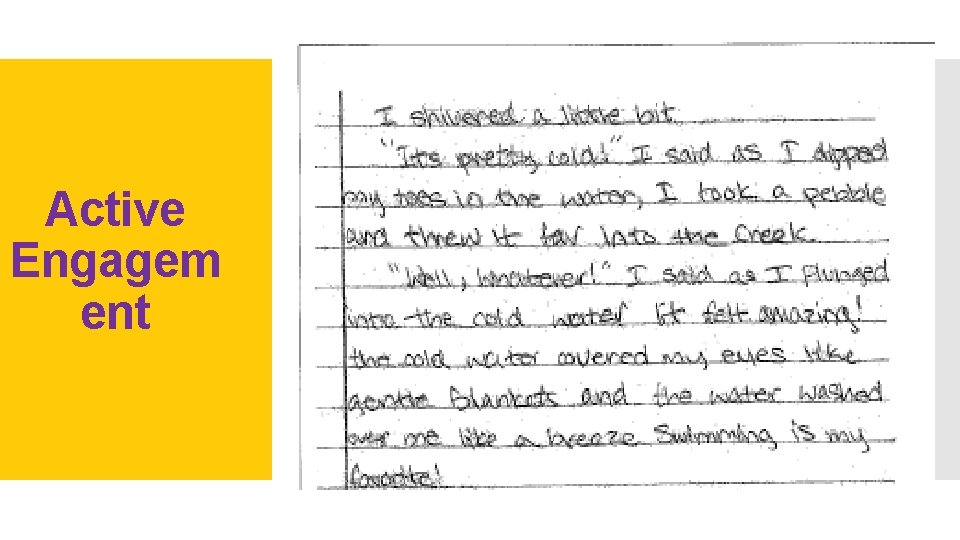 Active
Engagem
ent
I shivered a little bit.
"It's pretty cold!" I said as I dipped
my toes in the water, I took a pebble
and threw it far into the Creek.
"Well, whatever!" I said as I Plunged
into the cold water It felt amazing!
the cold water covered my eyes like
gentle Blankets and the water washed
over me like a breeze Swimming is my
favorite!